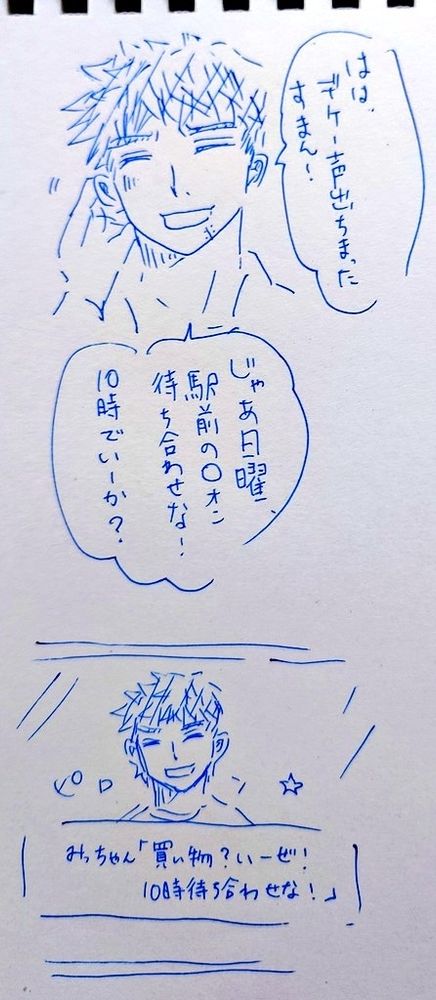 はは、
デケー声出ちまった
すまん!
じゃあ日曜、
駅前の〇オン
待ち合わせな!
10時でいーか?
みっちゃん「買い物?いーぜ!
10時待ち合わせな!」